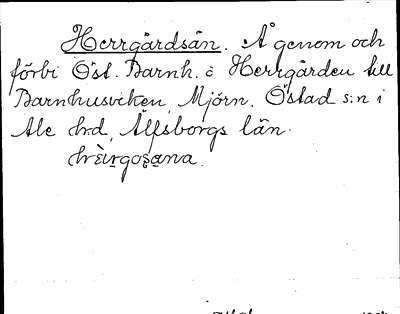 Herrgårdsån. Å genom och
förbi Öst. Barnh. o Herrgården till
Barnhusviken, Mjörn. Östad s:n i
Ale hrd, Älfsborgs län.